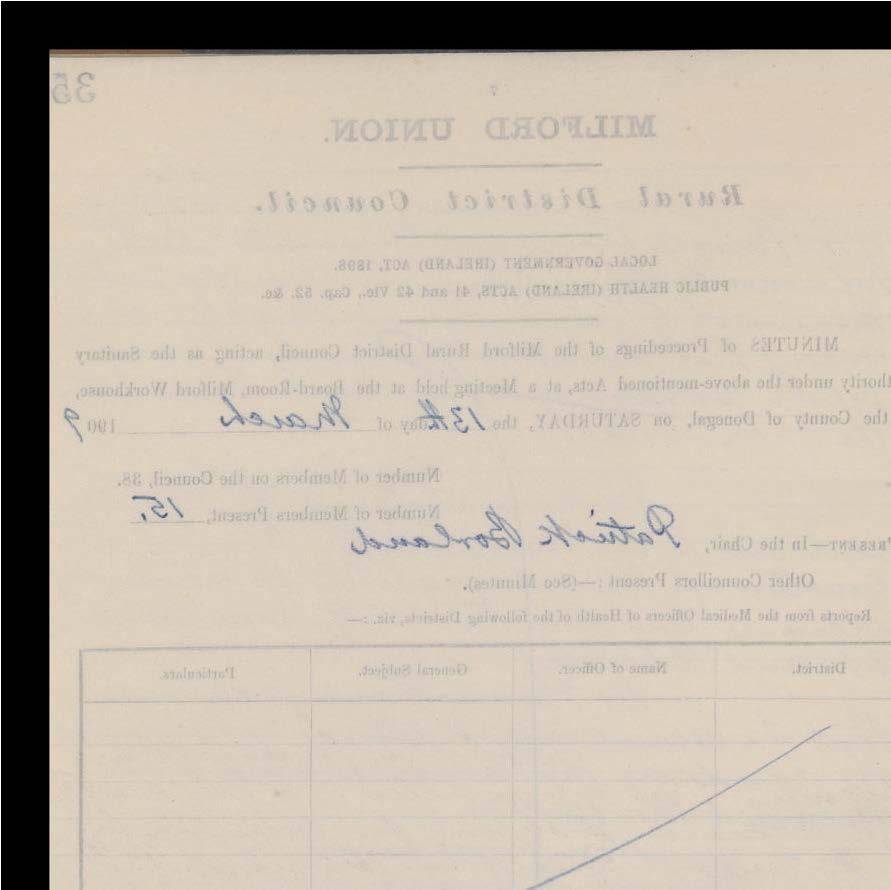 35
7
MILFORD UNION.
Rural District Council.
LOCAL GOVERNMENT (IRELAND) ACT, 1898.
PUBLIC HEALTH (IRELAND) ACTS, 41 and 42 Vic., Cap. 52, &c.
MINUTES of Proceedings of the Milford Rural District Council, acting as the Sanitary
uthority under the above-mentioned Acts, at a Meeting held at the Board-Room, Milford Workhouse,
the County of Donegal, on SATURDAY, the 13th day of March 1909
Number of Members on the Council, 38.
Number of Members Present, 15.
PRESENT—In the Chair, Patrick Borland
Other Councillors Present :—(See Minutes).
Reports from the Medical Officers of Health of the following Districts, viz. :—
District. Name of Officer. General Subject. Particulars.